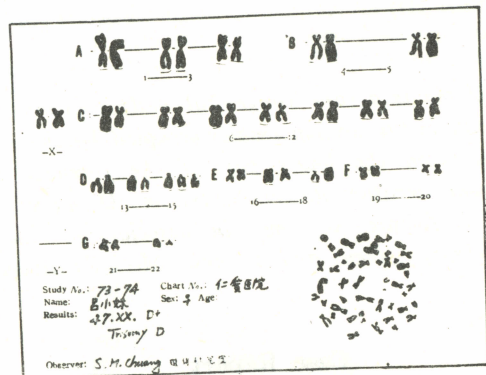 A 1 3 B 4 5
-X- C 6 12
D 13 15 E 16 18 F 19 20
-Y- G 21 22
Study No.: 73-74 Chart No.: 仁愛医院
Name: 呂小妹 Sex: ♀ Age:
Results: 47.XX. D+
Trisomy D
Observer: S.M. Chuang